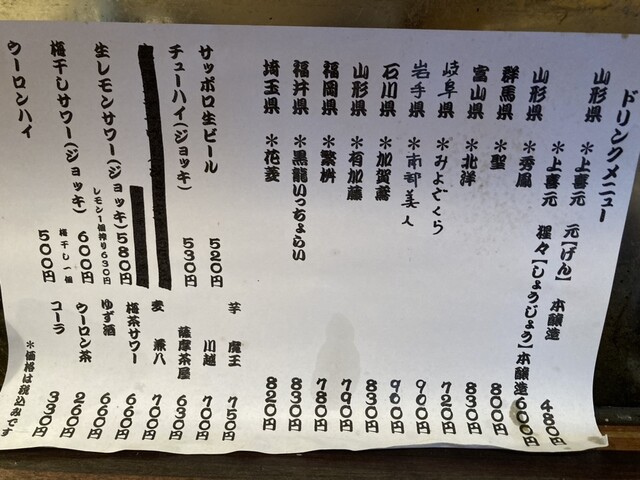 ドリンクメニュー
山形県 *上喜元 元【げん】 本醸造 480円
山形県 *上喜元 猩々【しょうじょう】本醸造 600円
山形県 *秀鳳 830円
群馬県 *聖 800円
富山県 *北洋 830円
岐阜県 *みよざくら 720円
岩手県 *南部美人 900円
石川県 *加賀鳶 900円
山形県 *有加藤 830円
福岡県 *繁桝 790円
福井県 *黒龍いっちょらい 780円
埼玉県 *花菱 830円
820円
サッポロ生ビール 520円
チューハイ(ジョッキ) 530円
生レモンサワー(ジョッキ) 580円
レモン一個搾り630円
梅干しサワー(ジョッキ) 600円
梅干し一個
ウーロンハイ 500円
芋 魔王 750円
川越 700円
薩摩茶屋 630円
麦 兼八 700円
梅茶サワー 660円
ゆず酒 660円
ウーロン茶 260円
コーラ 330円
*価格は税込みです